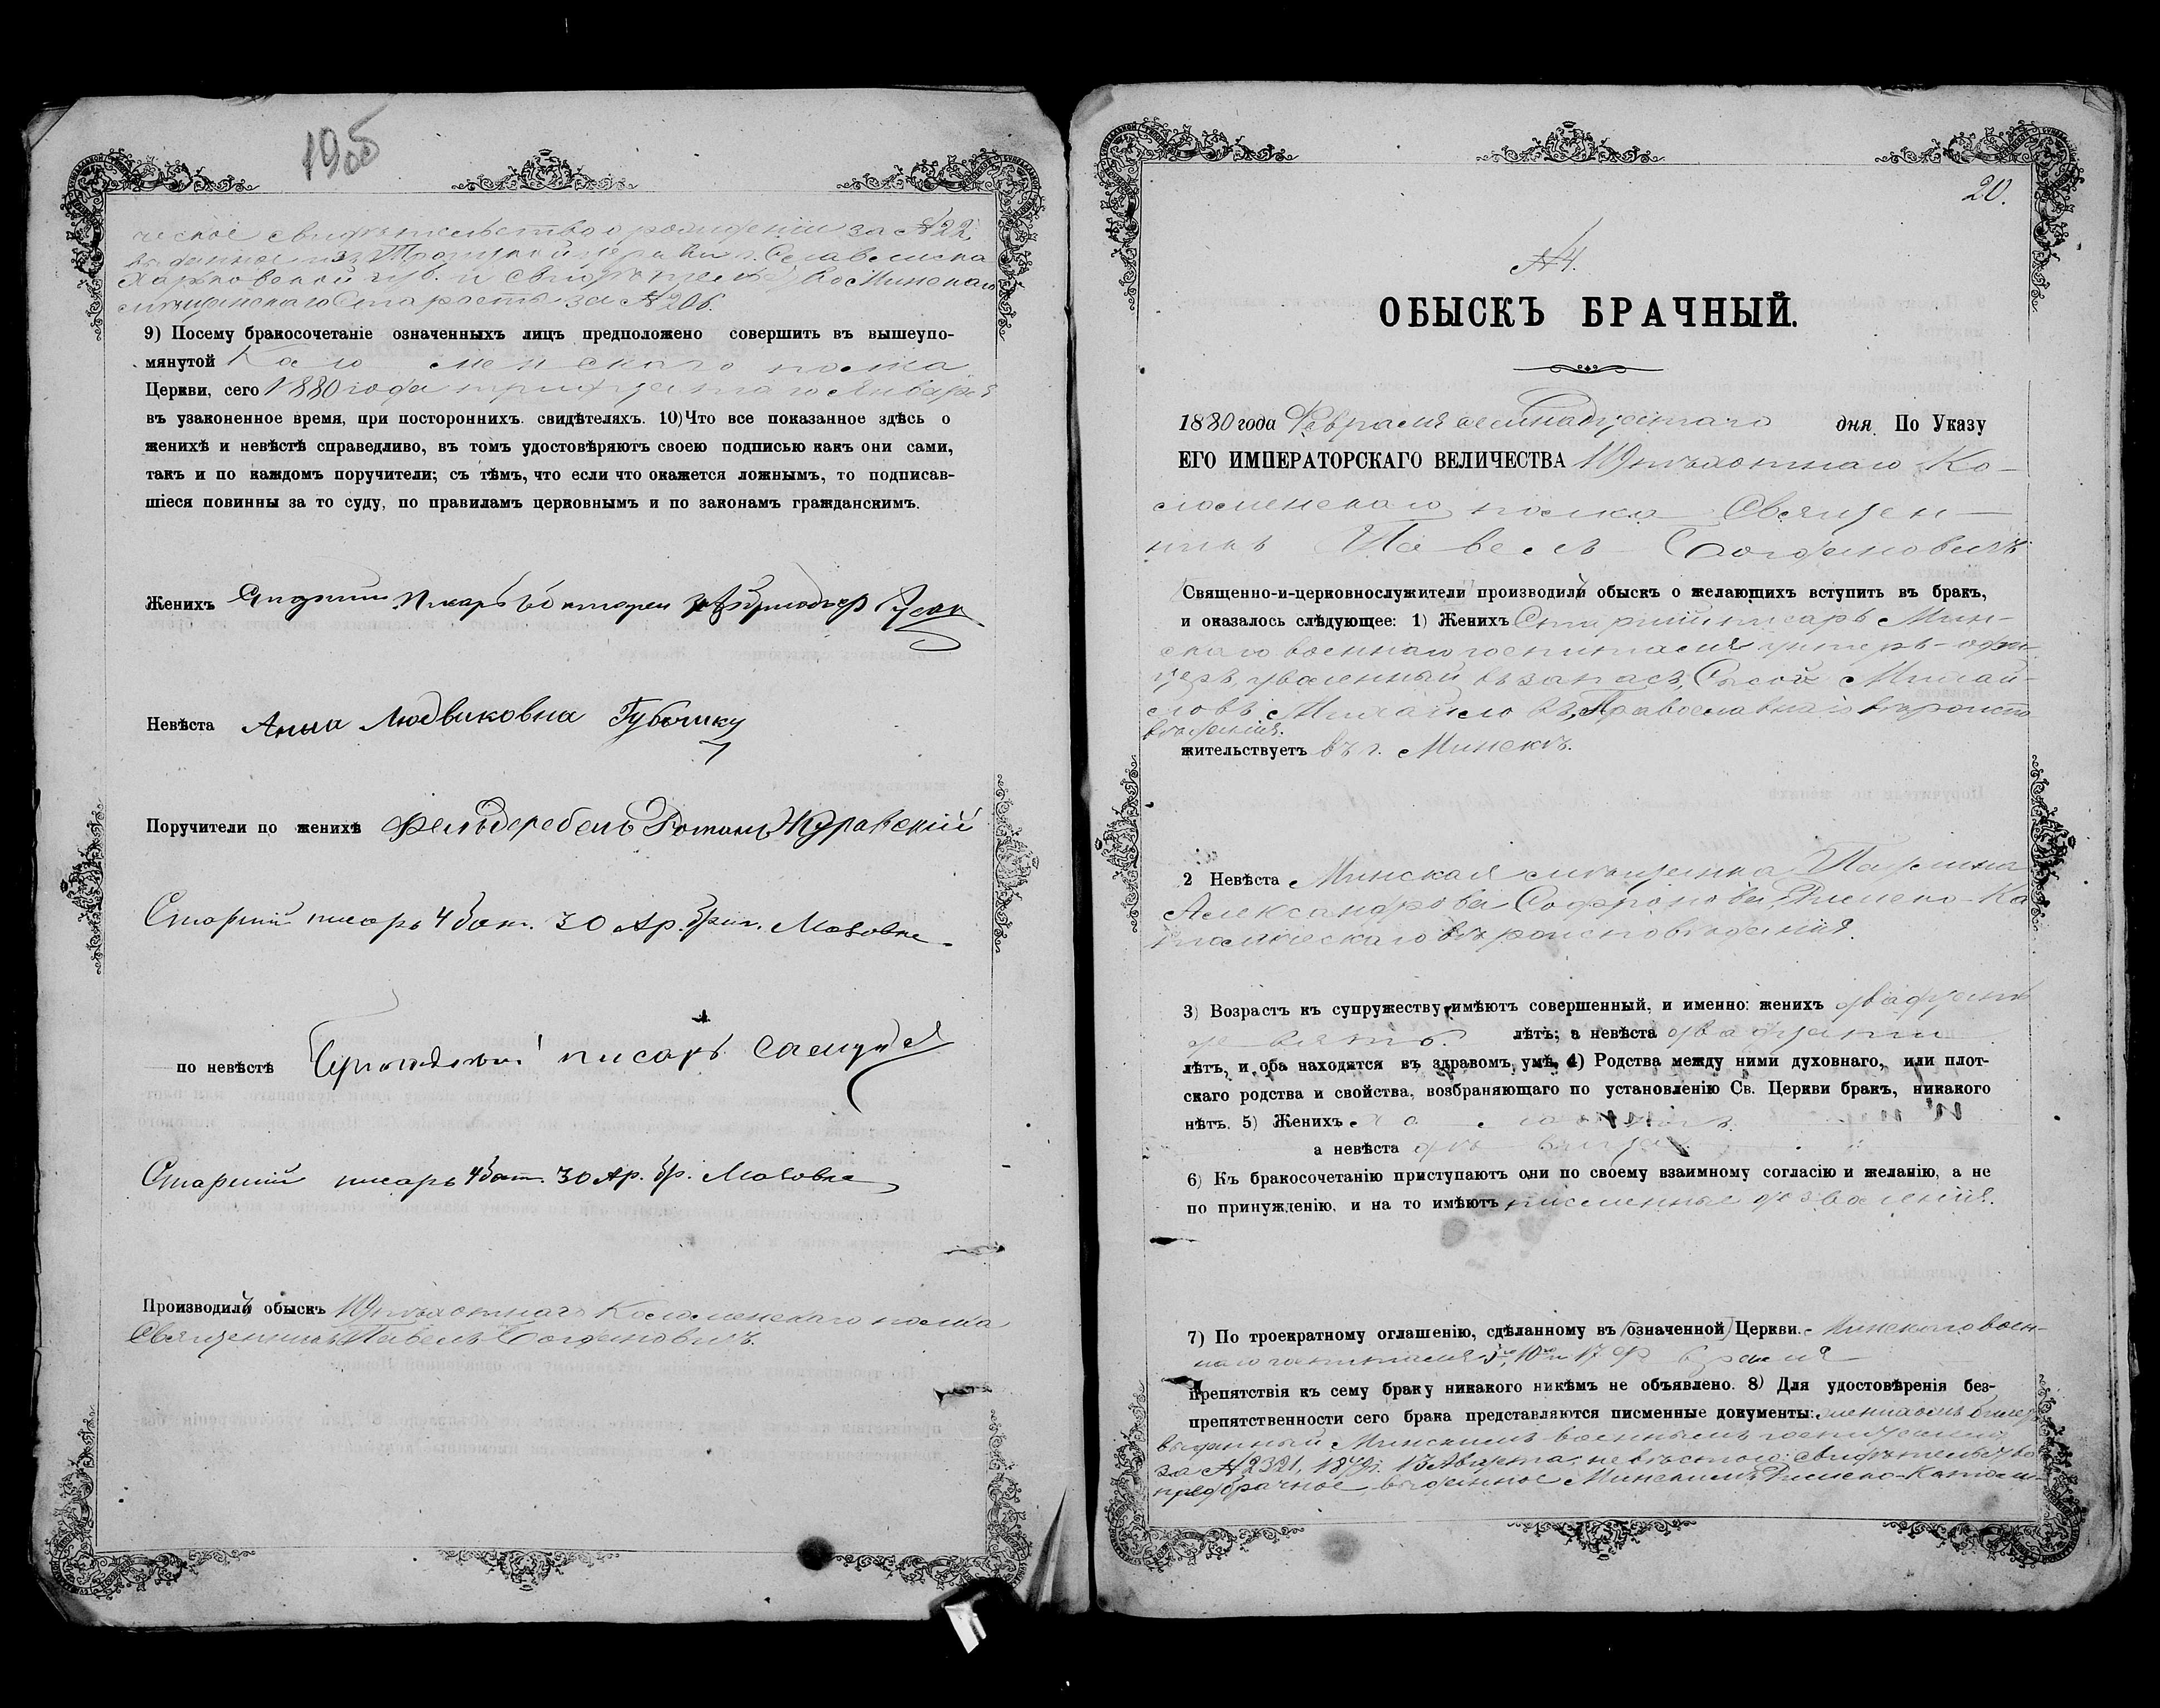 19об
ческое свидѣтельство о рожденіи за №22,
выданное изъ Троицкой церкви г. Славянска
Харьковской губ. и свидѣтельство Минскаго
мѣщанскаго Старосты за №206.
9) Посему бракосочетаніе означенныхъ лицъ предположено совершить въ вышеупо-
мянутой Коломенскаго полка
Церкви, сего 1880 года тридцатаго Января
въ узаконенное время, при постороннихъ свидѣтеляхъ. 10) Что все показанное здѣсь о
женихѣ и невѣстѣ справедливо, въ томъ удостовѣряютъ своею подписью какъ они сами,
такъ и по каждомъ поручители; съ тѣмъ, что если что окажется ложнымъ, то подписав-
шіеся повинны за то суду, по правиламъ церковнымъ и по законамъ гражданскимъ.
Женихъ писарь
Невѣста Анна Людвиковна
Поручители по женихѣ Романъ Журавскій
Старшій писарь 4 бат. 30 Ар. бриг.
по невѣстѣ писарь
Старшій писарь 4 бат. 30 Ар. бр.
Производилъ обыскъ 119 пѣхотнаго Коломенскаго полка
Священникъ Павелъ Богдановичъ.
20.
№4.
ОБЫСКЪ БРАЧНЫЙ.
1880 года Февраля семнадцатаго дня. По Указу
ЕГО ИМПЕРАТОРСКАГО ВЕЛИЧЕСТВА 119 пѣхотнаго Ко-
ломенскаго полка Священ-
никъ Павелъ Богдановичъ
Священно-и-церковнослужители производилъ обыскъ о желающихъ вступить въ бракъ,
и оказалось слѣдующее: 1) Женихъ Старшій писарь Мин-
скаго военнаго госпиталя унтеръ-офи-
церъ, уволенный въ запасъ, Сысой Михай-
ловъ Михайловъ, Православнаго вѣроиспо
вѣданія.
жительствуетъ въ г. Минскѣ.
2 Невѣста Минская мѣщанка Паулина
Александрова Софронова, Римско-Ка
толическаго вѣроисповѣданія.
3) Возрастъ къ супружеству имѣютъ совершенный, и именно: женихъ двадцать
девять лѣтъ; а невѣста двадцати
лѣтъ, и оба находятся въ здравомъ умѣ. 4) Родства между ними духовнаго, или плот-
скаго родства и свойства, возбраняющаго по установленію Св. Церкви бракъ, никакого
нѣтъ. 5) Женихъ холостъ
а невѣста дѣвица
6) Къ бракосочетанію приступаютъ они по своему взаимному согласію и желанію, а не
по принужденію, и на то имѣютъ письменныя дозволенія.
7) По троекратному оглашенію, сдѣланному въ означенной Церкви. Минскаго воен-
наго госпиталя 10 и 17 Февраля
препятствія къ сему браку никакого никѣмъ не объявлено. 8) Для удостовѣренія без-
препятственности сего брака представляются писменные документы: женихомъ билетъ
выданный Минскимъ военнымъ госпиталемъ
за №2321, 1879г. 13 Августа, невѣстою: свидѣтельство
предбрачное выданное Минскимъ Римско-Католи-